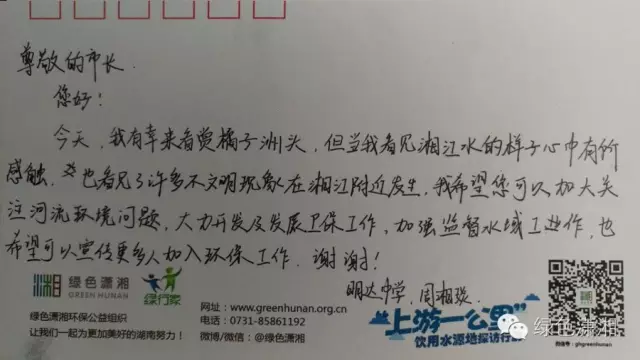 尊敬的市长.
您好!
今天,我有幸来看赏橘子洲头,但当我看见湘江水的样子心中有所
感触.也看见了许多不文明现象在湘江附近发生,我希望您可以加大关
注河流环境问题,大力开发及发展卫保工作,加强监督水域工作,也
希望可以宣传更多人加入环保工作.谢谢!
明达中学,周湘
绿色潇湘
GREEN HUNAN
绿行家
绿色潇湘环保公益组织
让我们一起为更加美好的湖南努力!
网址:www.greenhunan.org.cn
电话:0731-85861192
微博/微信:@绿色潇湘
上游一公里
饮用水源地探访行动
微信号:ghgreenhunan
绿色潇湘